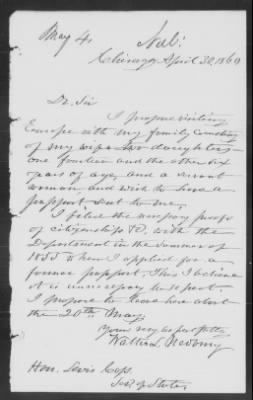 May 4.
Nat:
Chicago April 30, 1860
Dr. Sir
I propose visiting
Europe with my family consisting
of my wife two daughters
one fourteen and the other six
years of age, and a servant
woman, and wish to have a
passport sent to me.
I filed the necessary proofs
of citizenship &c, with the
Department in the summer of
1855 when I applied for a
former passport. This I believe
it is unnecessary to repeat
I propose to leave here about
the 20th May.
Your very respectfully
Walter L. Newberry
Hon. Lewis Cass.
Sec. of State,